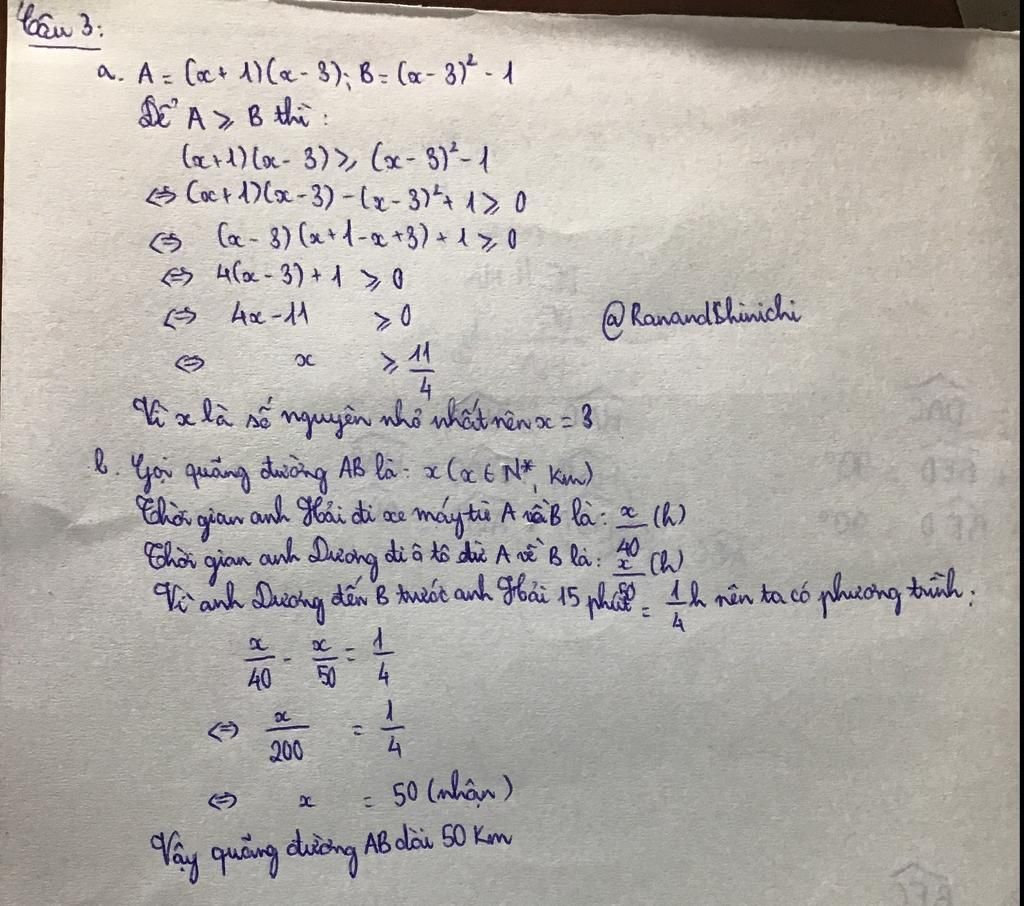 Câu 3:
a. A = (x + 1)(x - 3); B = (x - 3)² - 1
Để A ⩾ B thì:
(x+1)(x - 3) ⩾ (x - 3)² - 1
⇔ (x + 1)(x - 3) - (x - 3)² + 1 ⩾ 0
⇔ (x - 3)(x + 1 - x + 3) + 1 ⩾ 0
⇔ 4(x - 3) + 1 ⩾ 0
⇔ 4x - 11 ⩾ 0
@RanandShinichi
⇔ x ⩾ 11/4
Vì x là số nguyên nhỏ nhất nên x = 3
b. Gọi quãng đường AB là: x (x ∈ N*, Km)
Thời gian anh Hải đi xe máy từ A về B là: x/40 (h)
Thời gian anh Dương đi ô tô từ A về B là: x/50 (h)
Vì anh Dương đến B trước anh Hải 15 phút = 1/4 h nên ta có phương trình:
x/40 - x/50 = 1/4
⇔ x/200 = 1/4
⇔ x = 50 (nhận)
Vậy quãng đường AB dài 50 Km